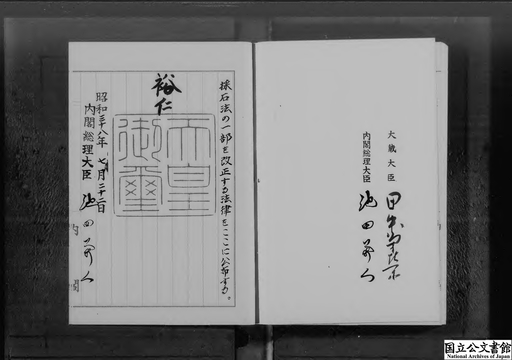 採石法の一部を改正する法律をここに公布する。
裕仁
天皇御璽
昭和三十八年七月二十二日
内閣総理大臣 池田勇人
内閣
大蔵大臣 田中角栄
内閣総理大臣 池田勇人
国立公文書館
National Archives of Japan